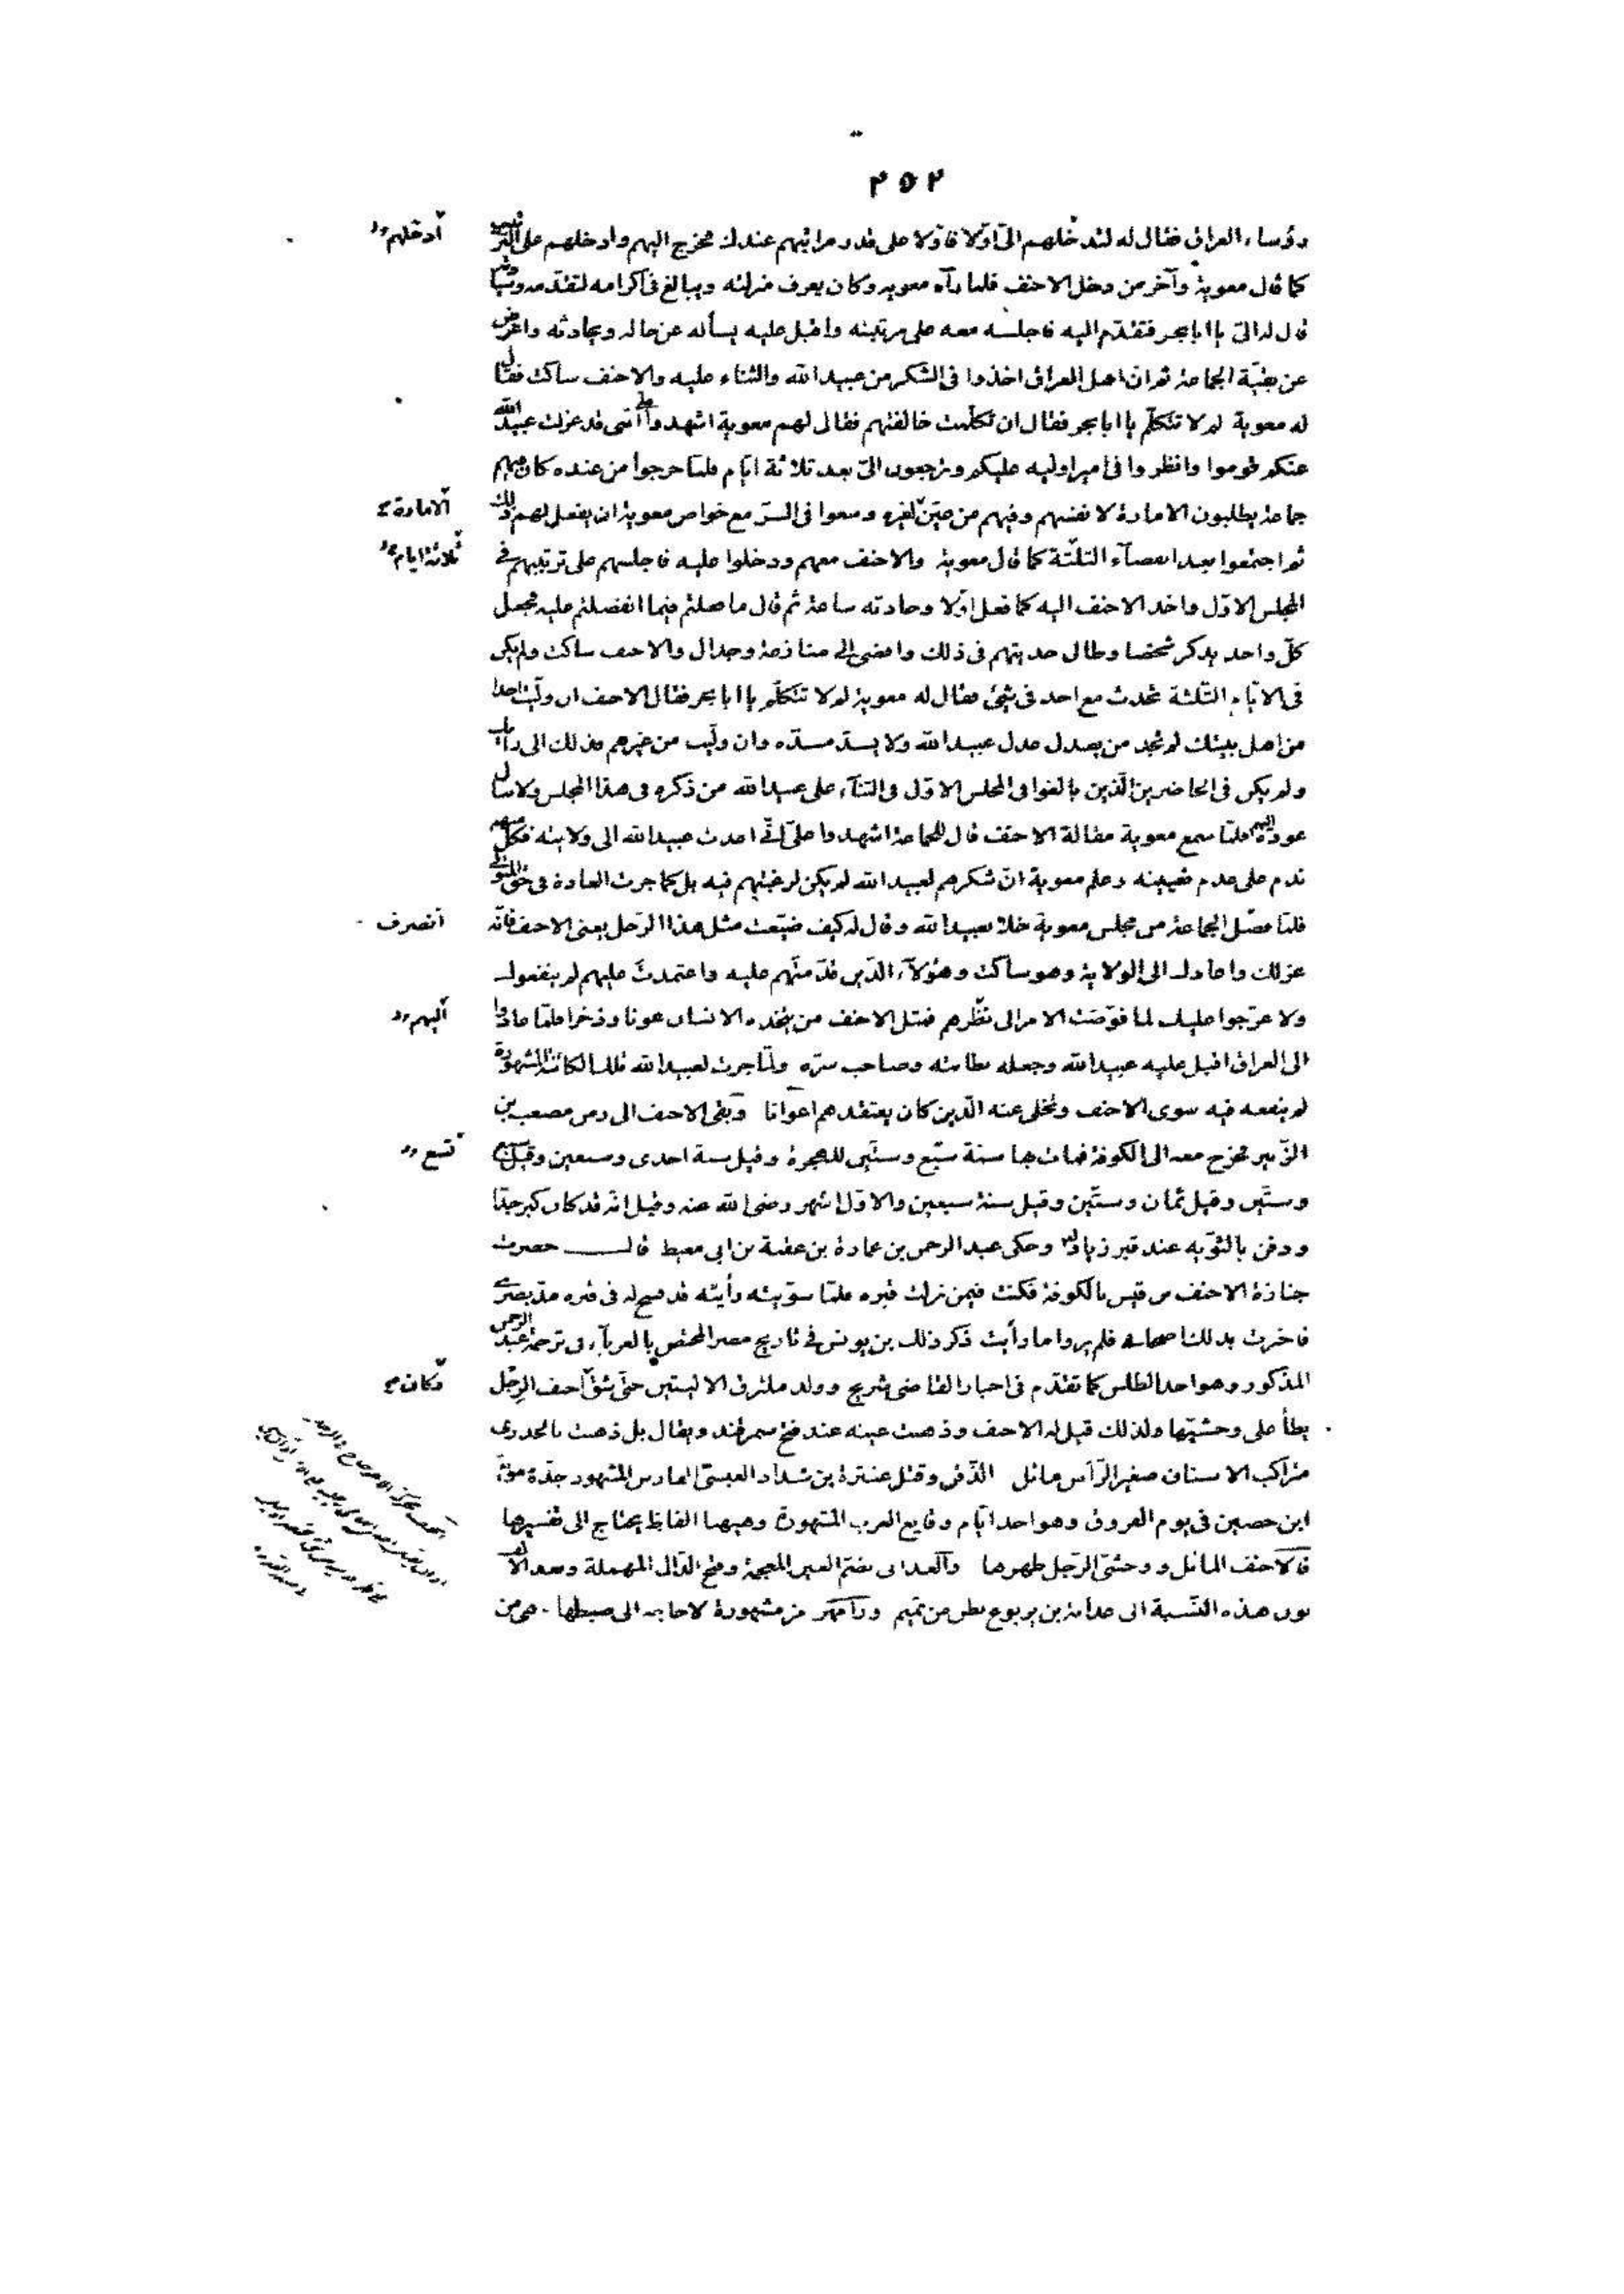 ٢٥٢
رؤساء العراق فقال له لتدخلهم الىّ اوّلا فاوّلا على قدر مراتبهم عندك فخرج اليهم وادخلهم على الترتيب
ادخلهم
كما قال معوية وآخر من دخل الاحنف فلما رآه معويه وكان يعرف منزلته ويبالغ فى اكرامه لتقدمه وسيادته
قال له الىّ يا ابا بحر فتقدّم اليه فاجلسه معه على مرتبته واقبل عليه يسأله عن حاله ويحادثه واعرض
عن بقيّة الجماعة ثم ان اهل العراق اخذوا فى الشكر من عبيد الله والثناء عليه والاحنف ساكت فقال
له معوية لم لا تتكلّم يا ابا بحر فقال ان تكلّمت خالفتهم فقال لهم معوية اشهدوا علىّ اننى قد عزلت عبيد الله
عنكم قوموا وانظروا فى امير اوليه عليكم وترجعون الىّ بعد ثلاثة ايّام فلمّا خرجوا من عنده كان فيهم
جماعة يطلبون الامارة لانفسهم وفيهم من عيّن لغيره وسعوا فى السرّ مع خواص معوية ان يفعل لهم ذلك
الامارة
ثم اجتمعوا بعد انقضآء الثلثة كما قال معوية والاحنف معهم ودخلوا عليه فاجلسهم على ترتيبهم فى
ثلاثة ايام
المجلس الاوّل واخذ الاحنف اليه كما فعل اوّلا وحادثه ساعة ثم قال ما فعلتم فيما انفصلتم عليه فجعل
كلّ واحد يذكر شخصا وطال حديثهم فى ذلك وافضى الى منازعة وجدال والاحنف ساكت ولم يكن
فى الايّام الثلثة تحدث مع احد فى شىء فقال له معوية لم لا تتكلّم يا ابا بحر فقال الاحنف ان ولّيت احدا
من اهل بيتك لم تجد من يعدل عدل عبيد الله ولا يسدّ مسدّه وان ولّيت من غيرهم فذلك الى رأيك
ولم يكن فى الحاضرين الّذين بالغوا فى المجلس الاوّل فى الثنآء على عبيد الله من ذكره فى هذا المجلس ولا سأل
عوده اليهم فلمّا سمع معوية مقالة الاحنف قال للجماعة اشهدوا علىّ انّى اعدت عبيد الله الى ولايته فكلّ منهم
ندم على عدم تعيينه وعلم معوية انّ شكرهم لعبيد الله لم يكن لرغبتهم فيه بل كما جرت العادة فى حق المتولّى
فلمّا فصل الجماعة من مجلس معوية خلا بعبيد الله وقال له كيف ضيّعت مثل هذا الرّجل يعنى الاحنف فانّه
انصرف
عزلك واعادك الى الولاية وهو ساكت وهؤلآء الّذين قدّمتهم عليه واعتمدت عليهم لم ينفعوك
ولا عرّجوا عليك لما فوّضت الامر الى نظرهم فمثل الاحنف من يتّخذه الانسان عونا وذخرا فلمّا عادوا
اليهم
الى العراق اقبل عليه عبيد الله وجعله بطانته وصاحب سرّه ولمّا جرت لعبيد الله تلك الكائنة المشهورة
لم ينفعه فيه سوى الاحنف وتخلى عنه الّذين كان يعتقدهم اعوانا وبقى الاحنف الى زمن مصعب بن
الزّبير فخرج معه الى الكوفة فمات بها سنة سبع وستّين للهجرة وقيل سنة احدى وسبعين وقيل سبع
تسع
وستّين وقيل ثمان وستّين وقيل سنة سبعين والاوّل اشهر رضى الله عنه وقيل انّه قد كان كبر جدّا
ودفن بالثويّه عند قبر زياد وحكى عبد الرحمن بن عمارة بن عقبة بن ابى معيط قال حضرت
جنازة الاحنف بن قيس بالكوفة فكنت فيمن نزل قبره فلمّا سوّيته رأيته قد فسح له فى قبره مدّ بصرى
فاخبرت بذلك اصحابى فلم يروا ما رأيت ذكر ذلك بن يونس فى تاريخ مصر المختص بالغربآء فى ترجمة عبد الرحمن
المذكور وهو احد الطلس كما تقدّم فى اخبار القاضى شريح وولد ملتزق الاليتين حتّى شقّ احنف الرّجل
وكان
يطأ على وحشيّها ولذلك قيل له الاحنف وذهبت عينه عند فتح سمرقند ويقال بل ذهبت بالجدرى
متراكب الاسنان صغير الرّأس مائل الذّقن وقتل عنترة بن شداد العبسىّ الفارس المشهور جدّه معوية
ابن حصين فى يوم الفروق وهو احد ايّام وقايع العرب المشهورة وفيها الفاظ يحتاج الى تفسيرها
فالاحنف المائل ووحشىّ الرّجل ظهرها والغدانى بضمّ الغين المعجمة وفتح الدّال المهملة وبعد الالف
نون هذه النّسبة الى غدانة بن يربوع بطن من تميم ورامهرمز مشهورة لا حاجة الى ضبطها هى من